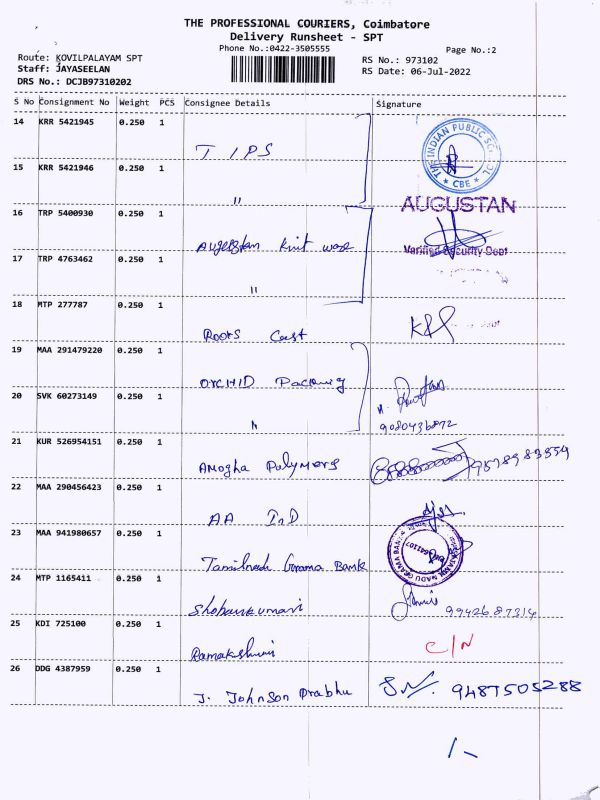 THE PROFESSIONAL COURIERS, Coimbatore
Delivery Runsheet - SPT
Phone No.:0422-3505555
Page No.:2
Route: KOVILPALAYAM SPT
RS No.: 973102
Staff: JAYASEELAN
RS Date: 06-Jul-2022
DRS No.: DCJB97310202
S No Consignment No Weight PCS Consignee Details Signature
14 KRR 5421945 0.250 1
T IPS
THE INDIAN PUBLIC SCHOOL
* CBE *
15 KRR 5421946 0.250 1
"
AUGUSTAN
16 TRP 5400930 0.250 1
Augustan Knit wear
Verified Security Dept
17 TRP 4763462 0.250 1
"
18 MTP 277787 0.250 1
Roots Cast
19 MAA 291479220 0.250 1
ORCHID Packing
20 SVK 60273149 0.250 1
"
9080436872
21 KUR 526954151 0.250 1
Amogha Polymers
9578983559
22 MAA 290456423 0.250 1
AA InD
23 MAA 941980657 0.250 1
Tamilnadu Grama Bank
TAMIL NADU GRAMA BANK
24 MTP 1165411 0.250 1
Shobankumari
9942687314
25 KDI 725100 0.250 1
C/N
26 DDG 4387959 0.250 1
J. Johnson Prabhu
9487505288
1-